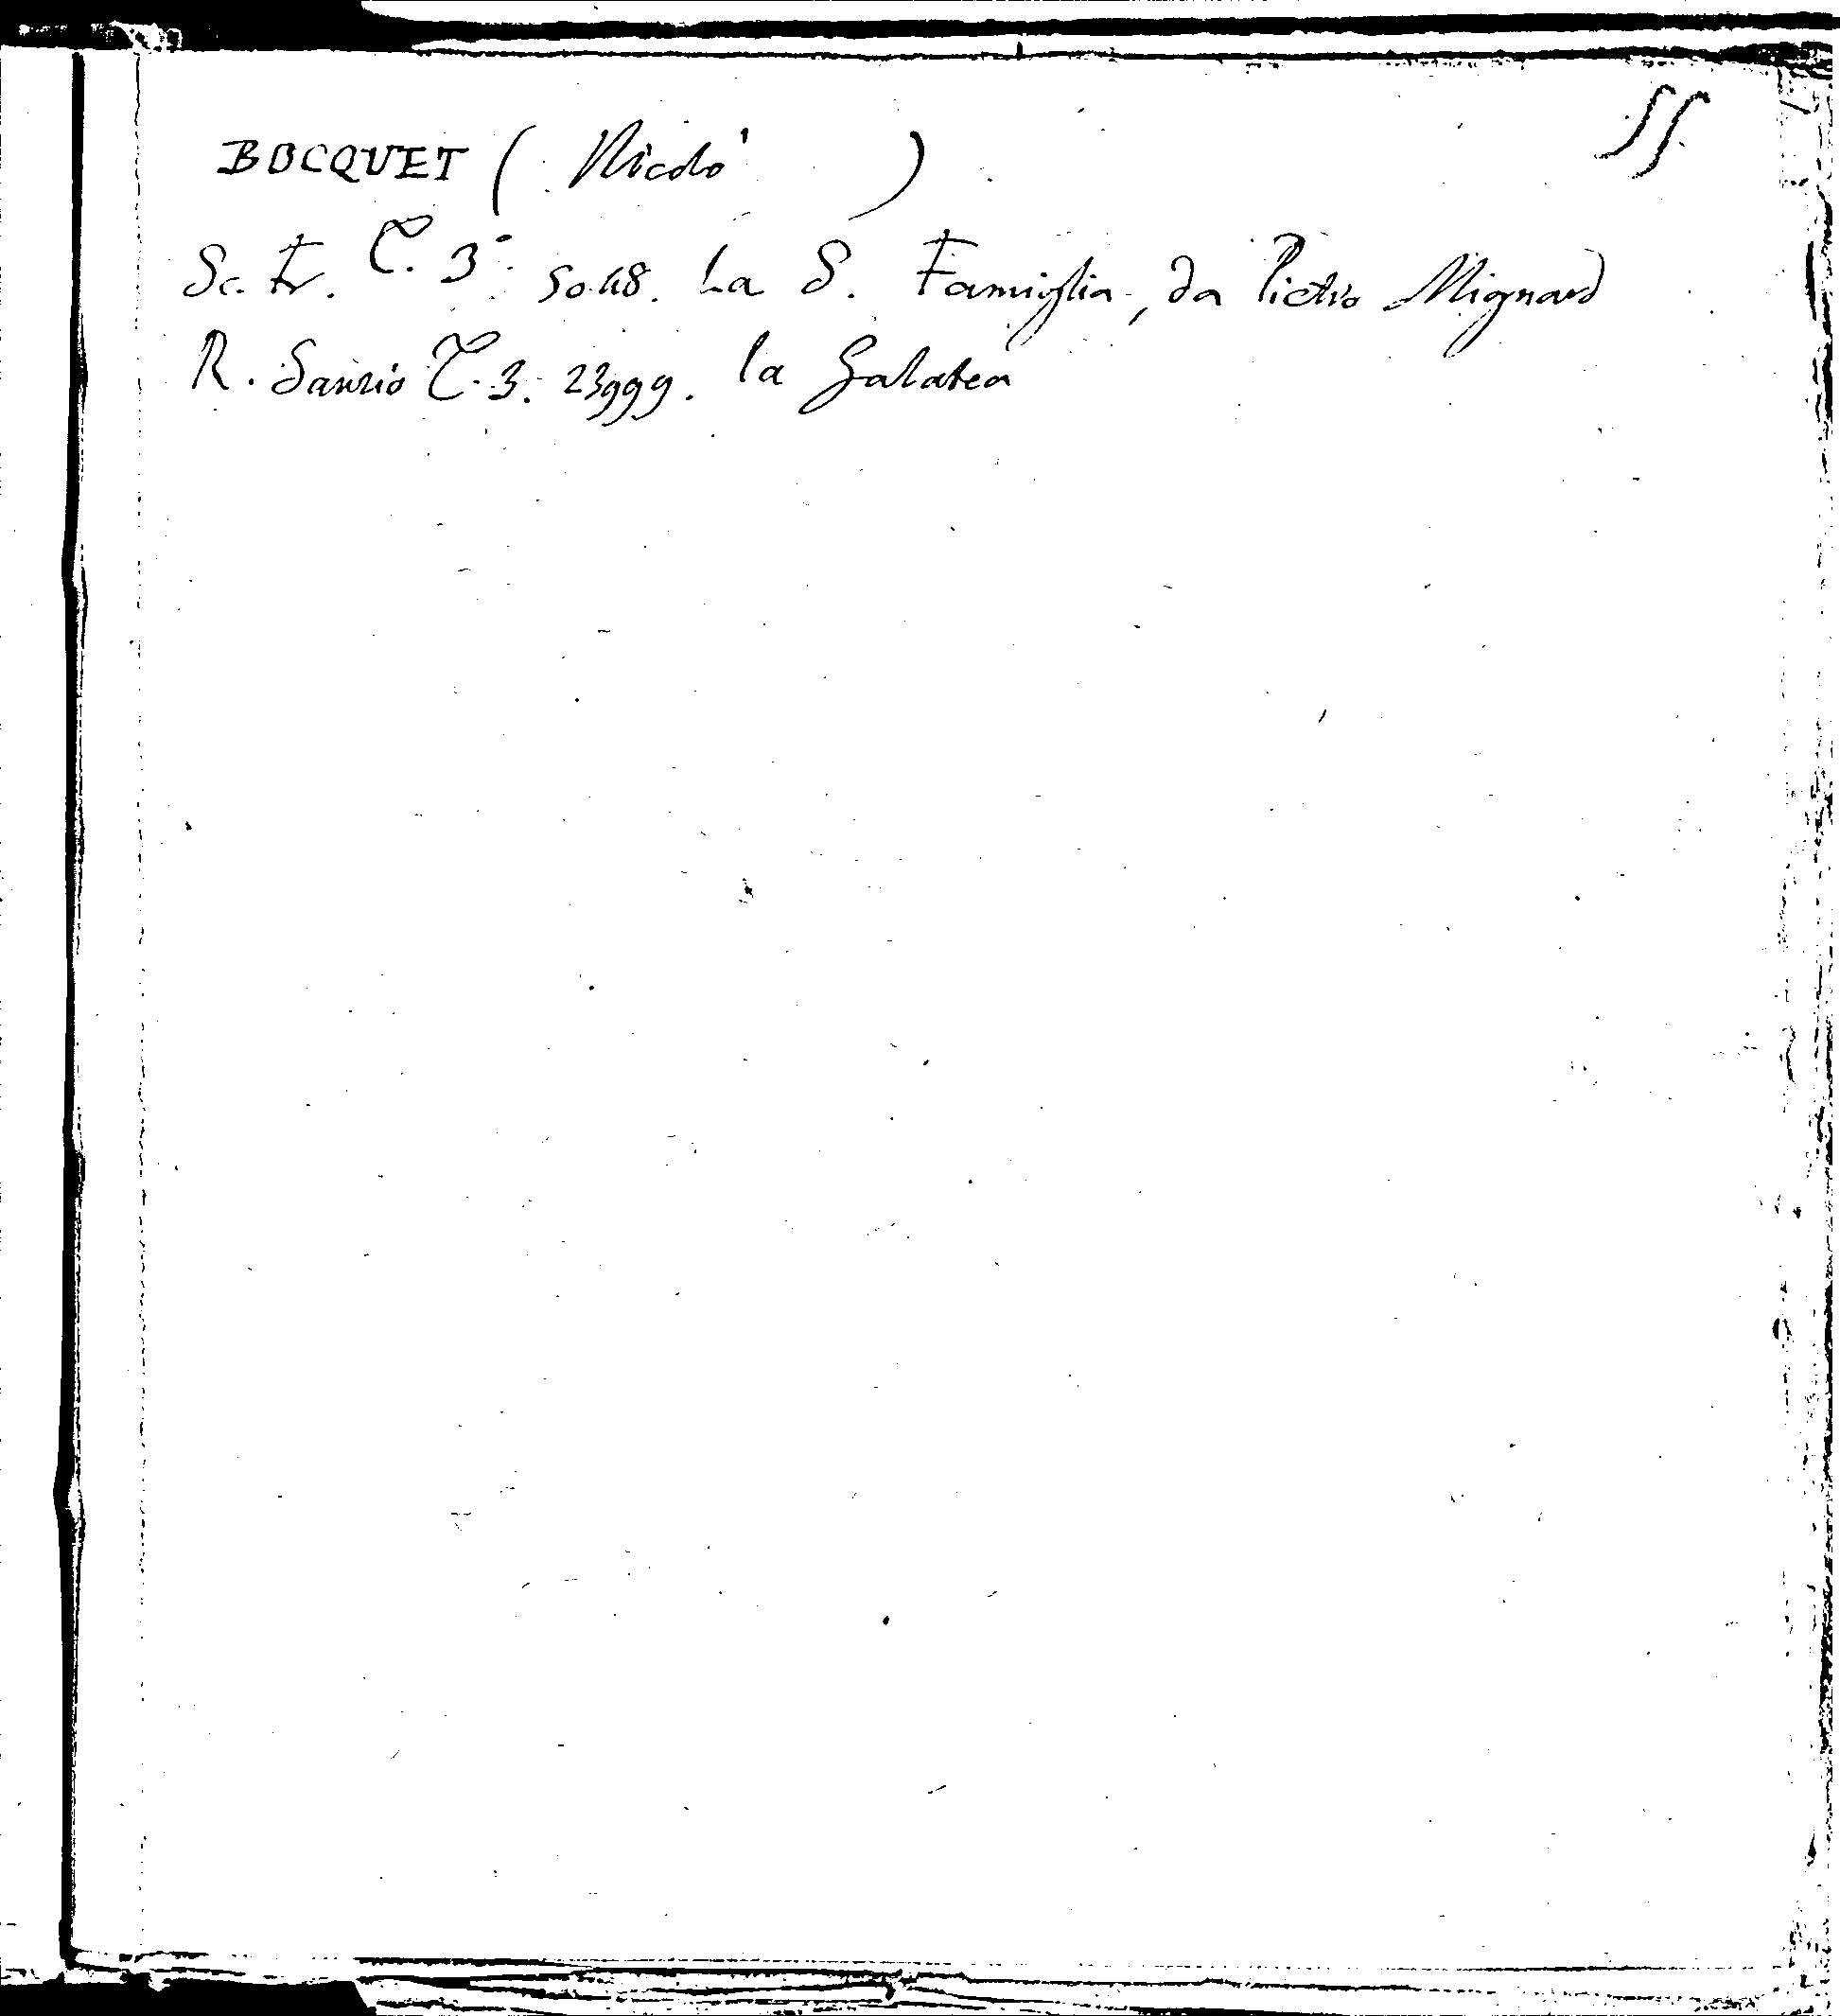 55.
BOCQUET ( Nicolò )
Sc. Fr. T. 3º. 5048. La S. Famiglia, da Pietro Mignard
R. Sanzio T. 3. 23999. la Galatea